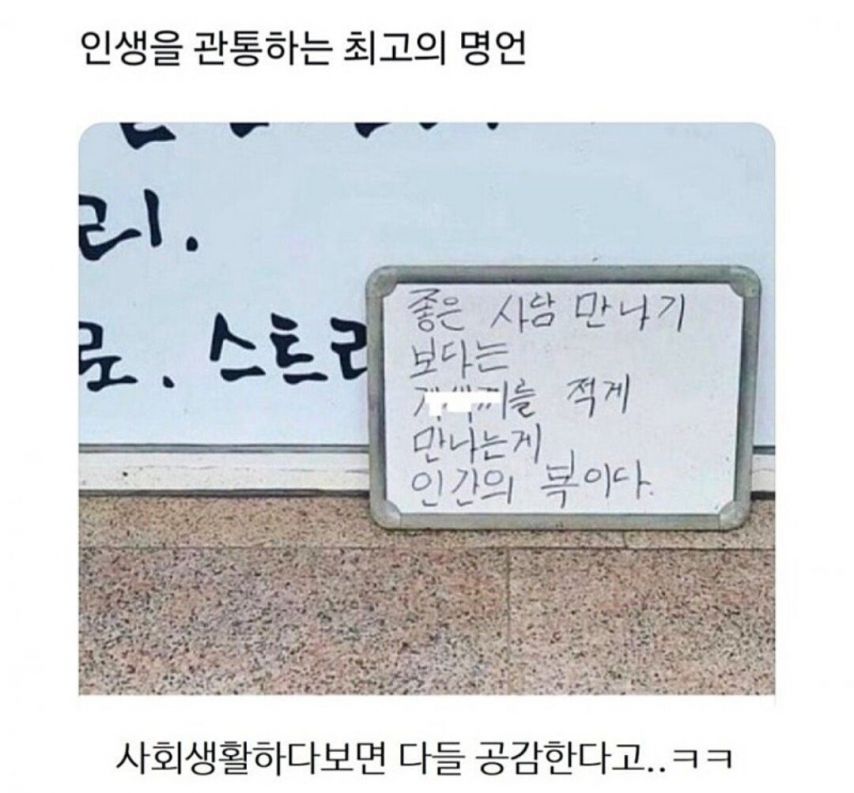 인생을 관통하는 최고의 명언
리.
로. 스트리
좋은 사람 만나기
보다는
를 적게
만나는게
인간의 복이다.
사회생활하다보면 다들 공감한다고..ㅋㅋ